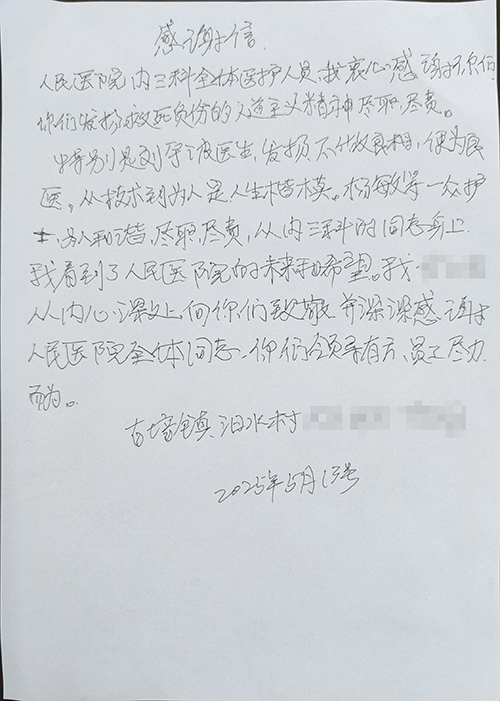 感谢信
人民医院内三科全体医护人员,我衷心感谢你们
你们发扬救死负伤的人道主义精神尽职,尽责。
特别是刘医生,发扬不什良相,便为良
医。从技术到为人是人生楷模。杨敏等一众护
士,为人和谐,尽职,尽责,从内三科的同志身上
我看到了人民医院的未来和希望。我
从内心深处上向你们致敬,并深深感谢
人民医院全体同志,你们领导有方,员工尽力
而为。
古培镇汨水村
2025年5月13号